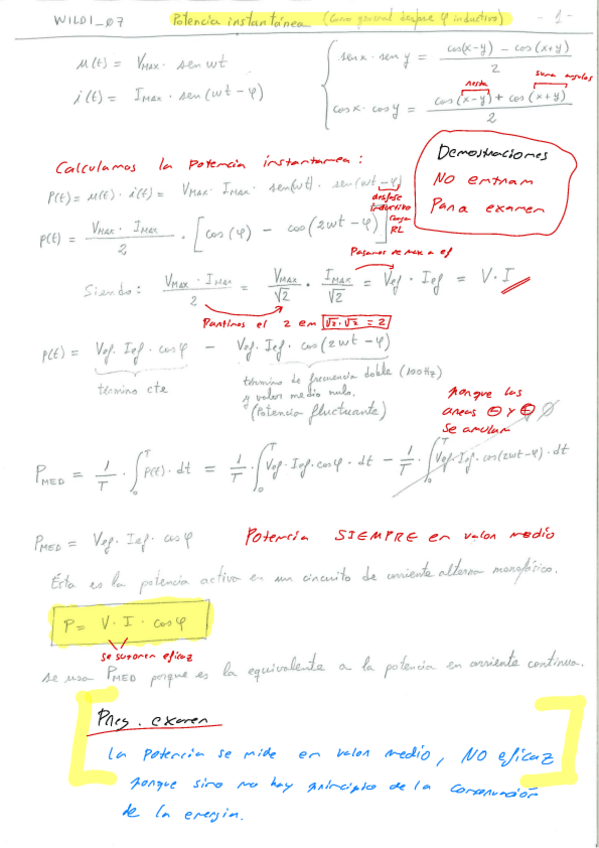 WILDI_07 Potencia instantánea (Caso general desfase φ inductivo) - 1 -
u(t) = VMAX · sen wt
i(t) = IMAX · sen (wt - φ)
sen x · sen y = cos(x-y) - cos(x+y) / 2
resta suma angulos
cos x · cos y = cos (x-y) + cos (x+y) / 2
Demostraciones
NO entran
Para examen
Calculamos la potencia instantanea:
P(t) = u(t) · i(t) = VMAX · IMAX · sen(wt) · sen(wt - φ)
desfase
inductivo
carga
RL
p(t) = VMAX · IMAX / 2 · [cos (φ) - cos (2wt - φ)]
Pasamos de max a ef
Siendo: VMAX · IMAX / 2 = VMAX / √2 · IMAX / √2 = Vef · Ief = V · I
Partimos el 2 en √2 · √2 = 2
p(t) = Vef · Ief · cos φ - Vef · Ief · cos (2wt - φ)
término cte
término de frecuencia doble (100Hz)
y valor medio nulo.
(Potencia fluctuante)
porque las
areas ⊖ y ⊕ ∅
se anulan
PMED = 1/T · ∫₀ᵀ P(t) · dt = 1/T · ∫₀ᵀ Vef · Ief · cos φ · dt - 1/T · ∫₀ᵀ Vef · Ief · cos(2wt - φ) · dt
PMED = Vef · Ief · cos φ Potencia SIEMPRE en valor medio
Ésta es la potencia activa en un circuito de corriente alterna monofásico.
P = V · I · cos φ
se suponen eficaz
se usa PMED porque es la equivalente a la potencia en corriente continua.
Preg. examen
La potencia se mide en valor medio, NO eficaz
porque sino no hay principio de la conservación
de la energia.